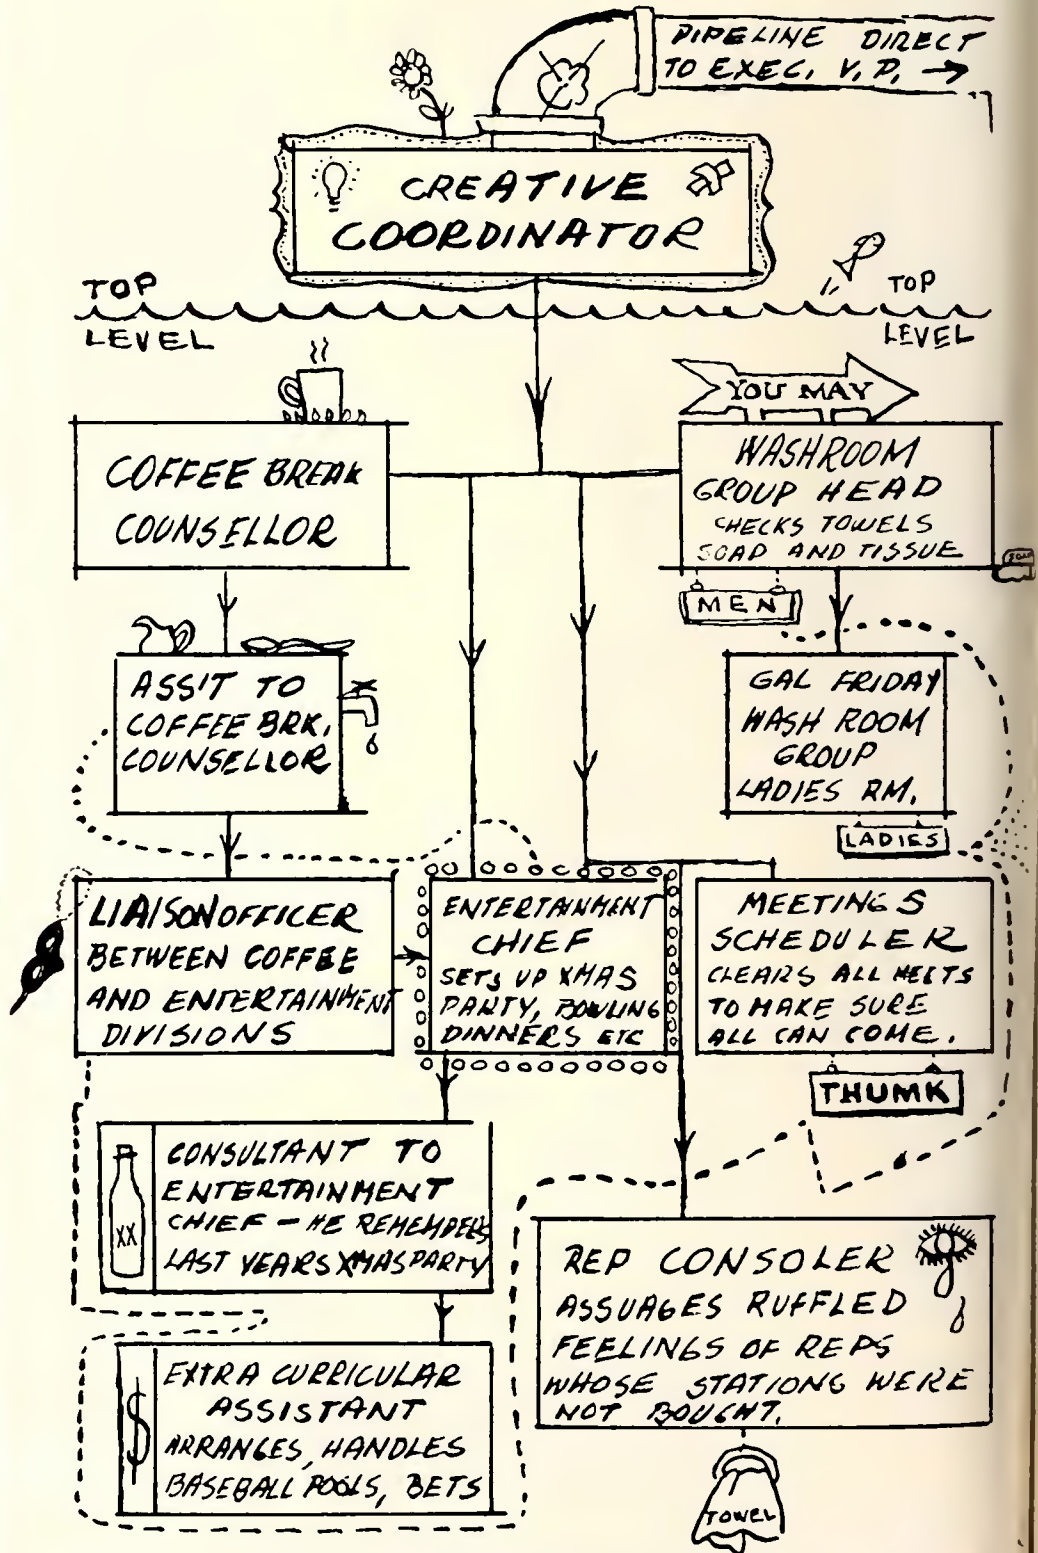 PIPELINE DIRECT
TO EXEC. V.P. →
CREATIVE
COORDINATOR
TOP
LEVEL
TOP
LEVEL
COFFEE BREAK
COUNSELLOR
YOU MAY
WASHROOM
GROUP HEAD
CHECKS TOWELS
SOAP AND TISSUE
SOAP
MEN
ASS'T TO
COFFEE BRK.
COUNSELLOR
GAL FRIDAY
WASH ROOM
GROUP
LADIES RM.
LADIES
LIAISON OFFICER
BETWEEN COFFEE
AND ENTERTAINMENT
DIVISIONS
ENTERTAINMENT
CHIEF
SETS UP XMAS
PARTY, BOWLING
DINNERS ETC
MEETINGS
SCHEDULER
CLEARS ALL MEETS
TO MAKE SURE
ALL CAN COME.
THUMK
XX
CONSULTANT TO
ENTERTAINMENT
CHIEF — HE REMEMBERS
LAST YEARS XMAS PARTY
REP CONSOLER
ASSUAGES RUFFLED
FEELINGS OF REPS
WHOSE STATIONS WERE
NOT BOUGHT.
TOWEL
$
EXTRA CURRICULAR
ASSISTANT
ARRANGES, HANDLES
BASEBALL POOLS, BETS